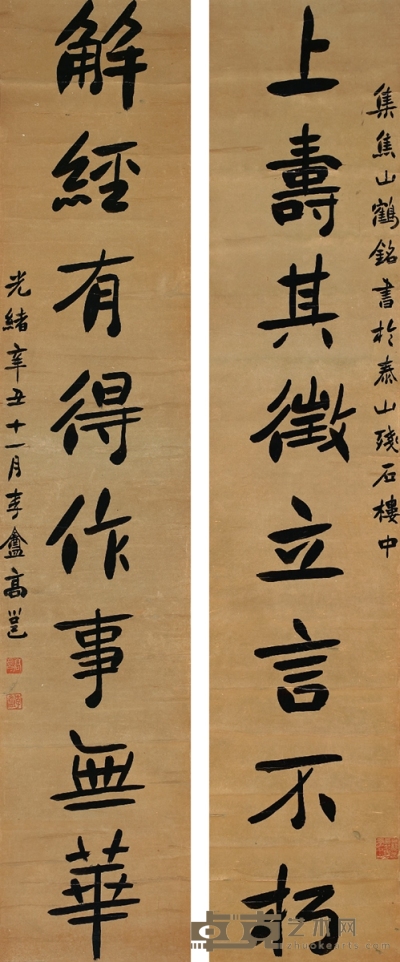 集焦山鶴銘書於泰山殘石樓中
上壽其徵立言不朽
解經有得作事無華
光緒辛丑十一月李盦高邕
卓克艺术网